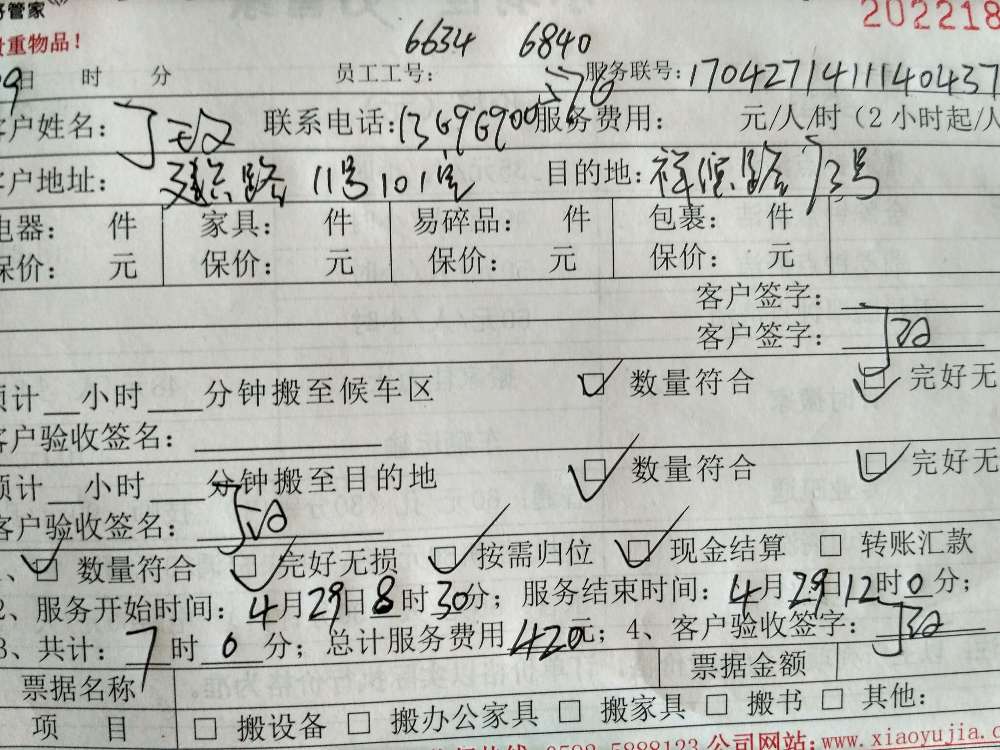 好管家 202218
贵重物品!
6634 6840
29日 时 分 员工工号: 服务联号: 17042714111140437
客户姓名: 联系电话: 服务费用: 元/人/时(2小时起/人
客户地址: 11号101室 目的地: 路 号
电器: 件 家具: 件 易碎品: 件 包裹: 件
保价: 元 保价: 元 保价: 元 保价: 元
客户签字:
客户签字:
预计 小时 分钟搬至候车区 数量符合 完好无
客户验收签名:
预计 小时 分钟搬至目的地 数量符合 完好无
客户验收签名:
1、 数量符合 完好无损 按需归位 现金结算 转账汇款
2、服务开始时间: 4月29日8时30分; 服务结束时间: 4月29日12时0分;
3、共计: 7时0分; 总计服务费用420元; 4、客户验收签字:
票据名称 票据金额
项 目 搬设备 搬办公家具 搬家具 搬书 其他:
0592-5888123 公司网站:www.xiaoyujia.c